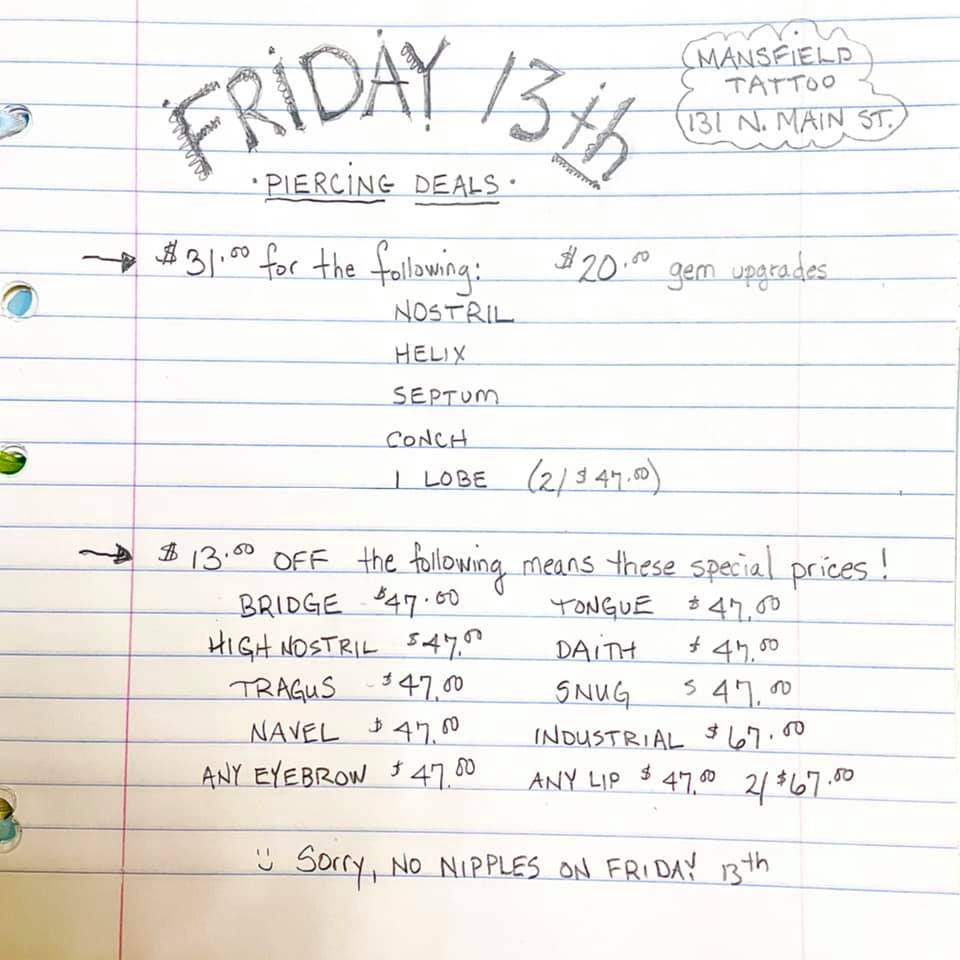 FRIDAY 13th
MANSFIELD
TATTOO
131 N. MAIN ST.
· PIERCING DEALS ·
→ $31.00 for the following: $20.00 gem upgrades
NOSTRIL
HELIX
SEPTUM
CONCH
1 LOBE (2/$47.00)
→ $13.00 OFF the following means these special prices!
BRIDGE $47.00 TONGUE $47.00
HIGH NOSTRIL $47.00 DAITH $47.00
TRAGUS - $47.00 SNUG $47.00
NAVEL $47.00 INDUSTRIAL $67.00
ANY EYEBROW $47.00 ANY LIP $47.00 2/$67.00
Sorry, NO NIPPLES ON FRIDAY 13th